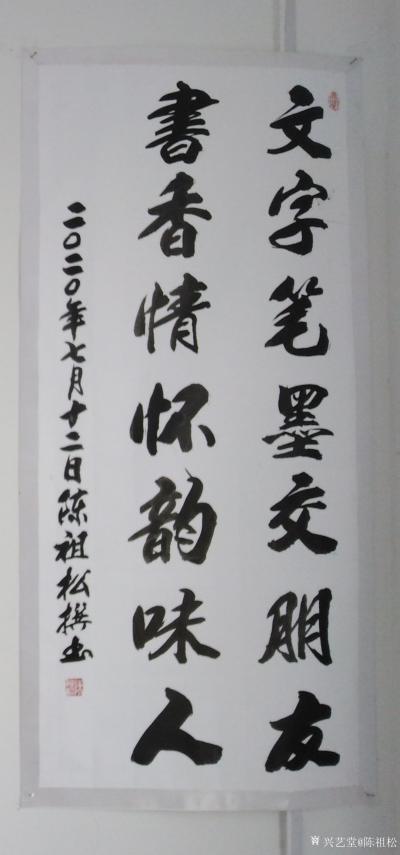 文字笔墨交朋友
書香情怀韵味人
二〇二〇年七月十二日陈祖松撰书
兴艺堂@陈祖松